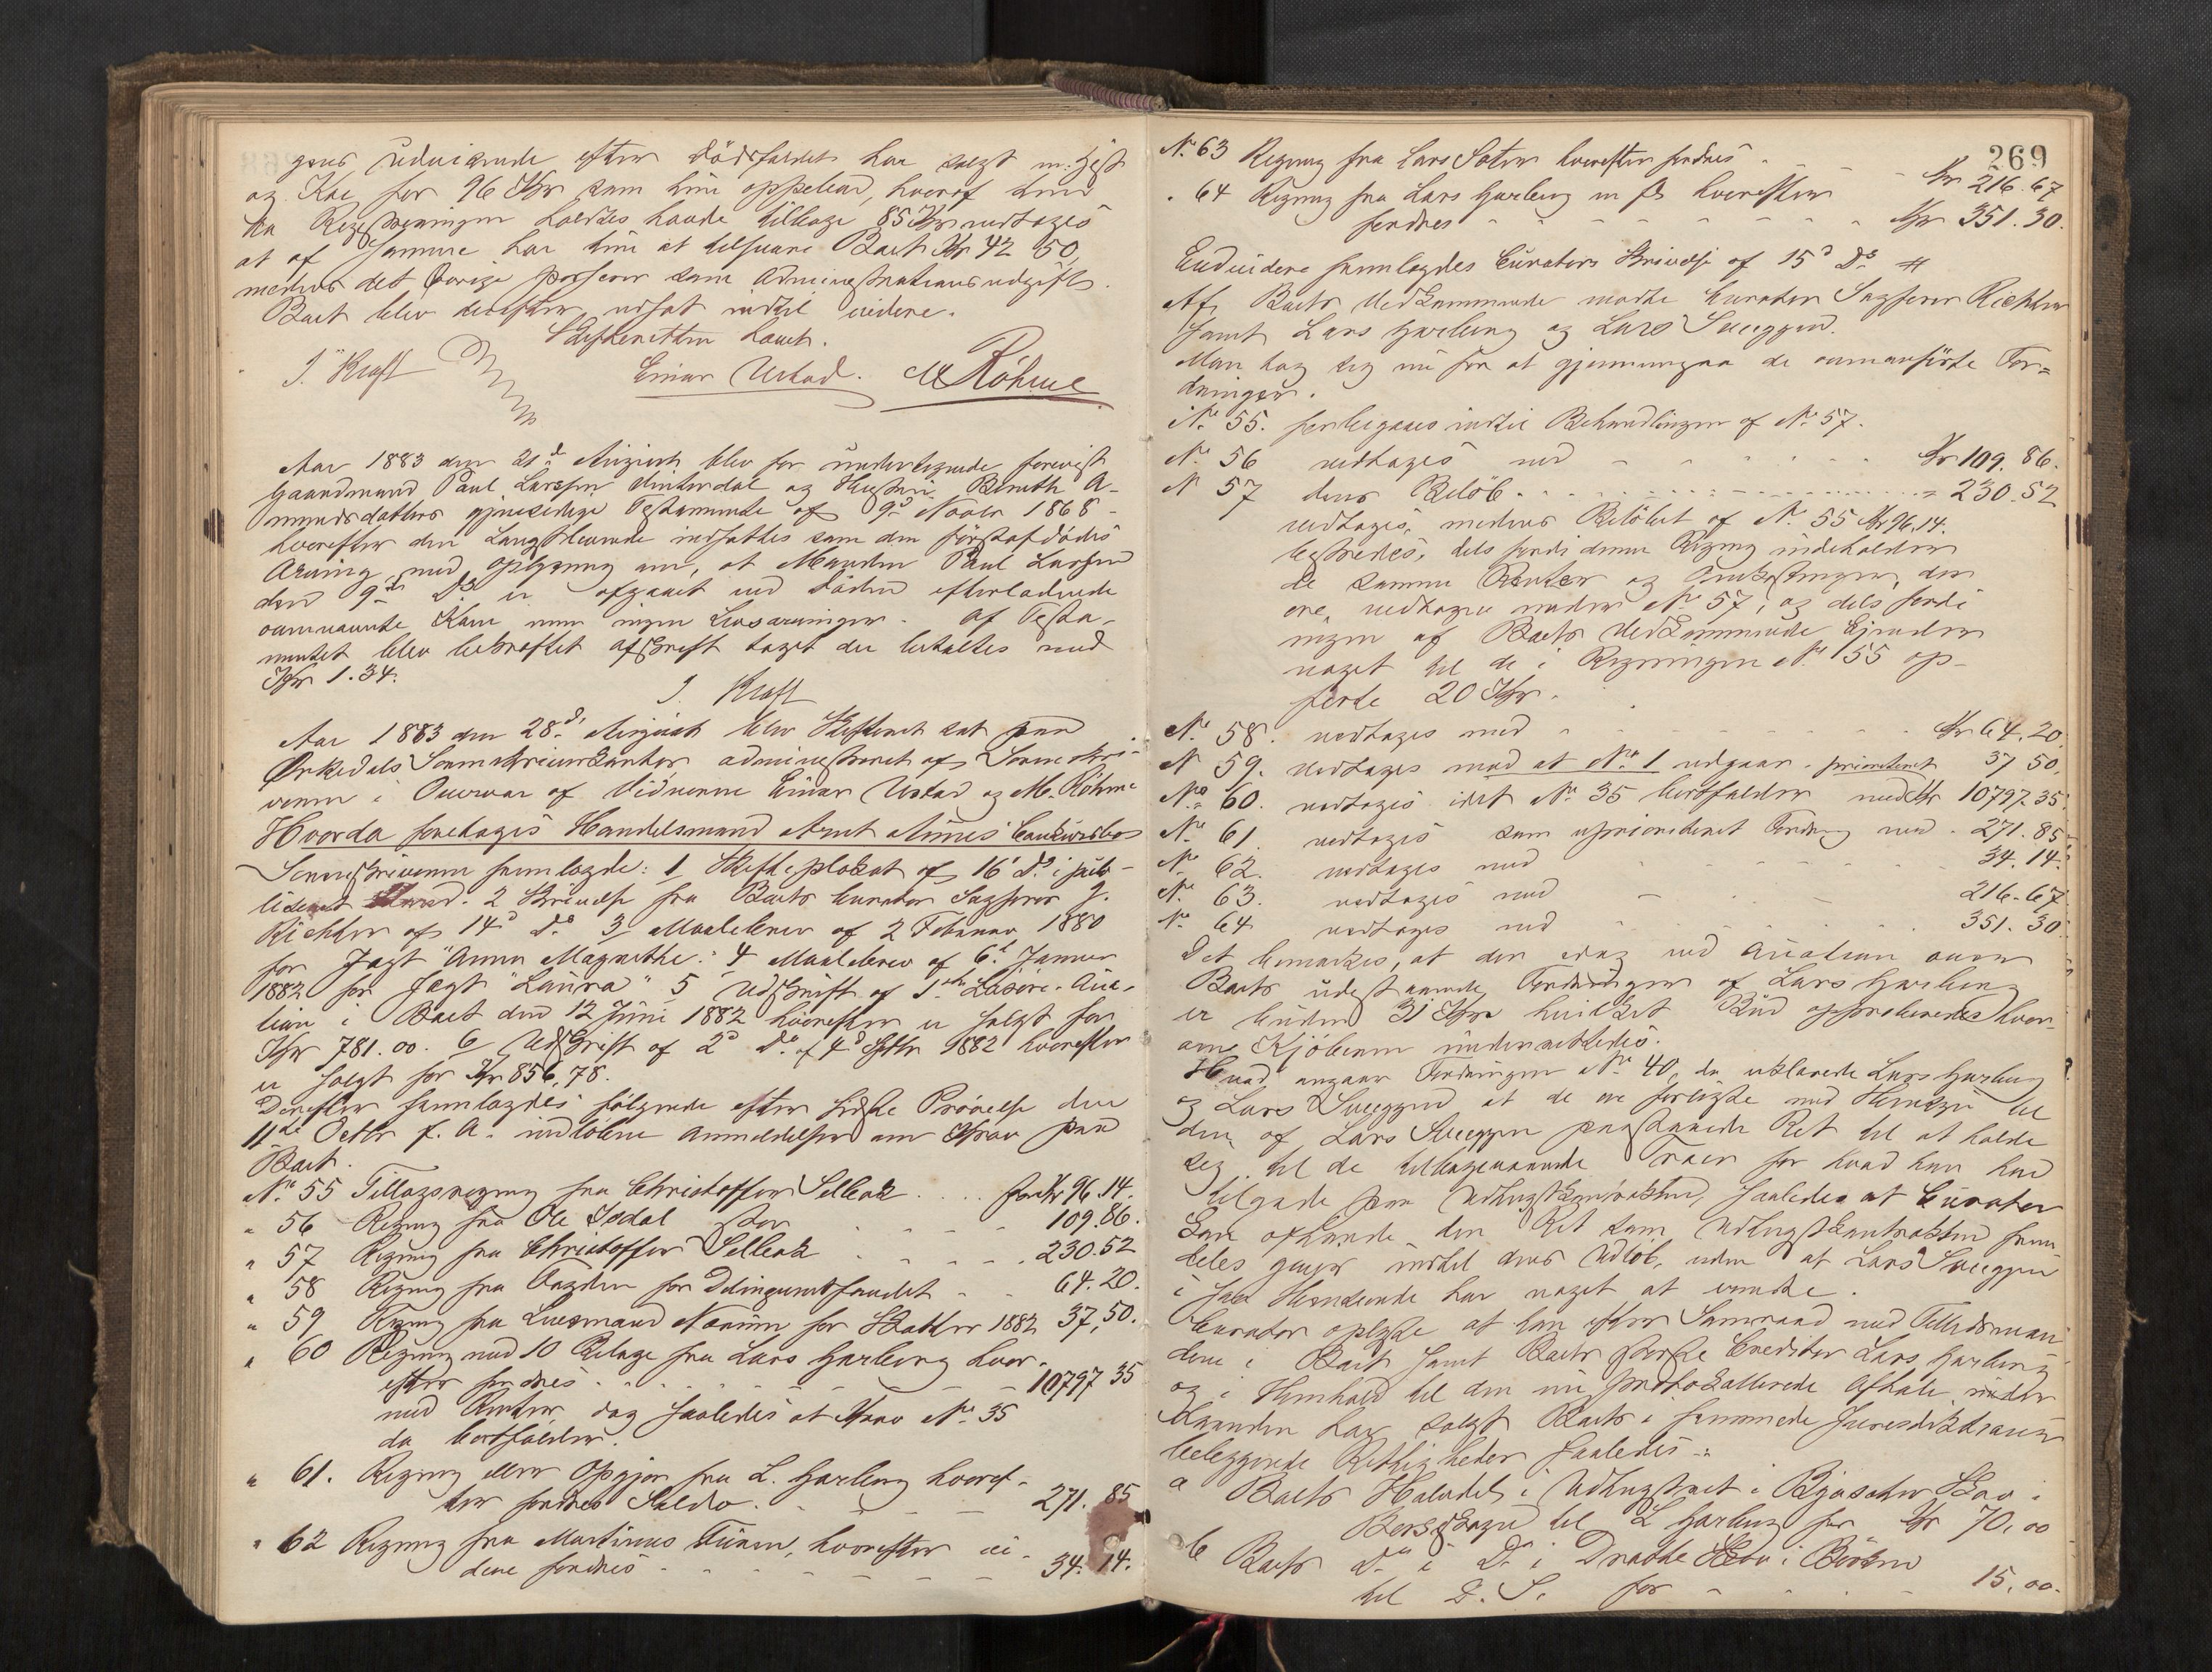 gens udvisende efter Dödsfaldet har solgt m. Hest
og Kar for 96 Kr som hun oppebar, hvoraf hun
fra Registreringen holdtes havde tilbage 85 Kr vedtoges
at af samme har hun at tilsvare Boet Kr 42 50,
medens det Övrige passerer som Administrationsudgifter.
Boet blev derefter udsat indtil videre.
Skifteretten hævet.
J. Kraft Einar Ustad. M Röhme
Aar 1883 den 21d August blev for undertegnede forevist
Gaardmand Paul Larsen Vinterdal og Hustru Bereth A-
mundsdatters gjensidige Testamente af 9d Novbr 1868
hvorefter den Længstlevende indsattes som den förstafdödes
Arving med Oplysning om, at Manden Paul Larsen
den 9de Ds er afgaaet ved Döden efterladende
ovennævnte Kone men ingen Livsarvinger. Af Testa-
mentet blev bekræftet Afskrift taget der betaltes med
Kr 1.34.
J. Kraft
Aar 1883 den 28d August blev Skifteret sat paa
Örkedals Sorenskriverkontor administreret af Sorenskri-
veren i Overvær af Vidnerne Einar Ustad og M. Röhme
Hvorda foretoges Handelsmand Arnt Aunes Concursbo
Sorenskriveren fremlagde: 1, Skifteplakat af 16 Ds i pub-
liceret Stand. 2 Skrivelse fra Boets Curator Sagförer J.
Richter af 14d Ds 3, Maalebrev af 2 Februar 1880
for Jagt "Anna Magrethe." 4 Maalebrev af 6t Januar
1882 for Jagt "Laura" 5 Udskrift af 1ste Lösöre-Auc-
tion i Boet den 12 Juni 1882 hvorefter er solgt for
Kr 781.00. 6 Udskrift af 2d Do af 4d Septbr 1882 hvorefter
er solgt for Kr 856,78.
Derefter fremlagdes fölgende efter sidste Prövelse den
11te Octbr f. A. indlöbne Anmeldelser om Krav paa
Boet.
No 55 Tillægsregning fra Christoffer Selbæk .... for Kr 96.14.
" 56 Regning fra Ole Isdal stor 109.86.
" 57 Regning fra Christoffer Selbæk 230.52
" 58 Regning fra Fogden for Delinquentfondet 64.20.
" 59 Regning fra Lensmand Norum for Skatter 1882 37,50.
" 60 Regning med 10 Bilage fra Lars Garberg hvor-
efter fordres 10797 35
med Renter dog saaledes at Krav No 35
da bortfalder.
" 61. Regning eller Opgjör fra L. Garberg hvoref-
ter fordres Saldo. 271. 85
" 62 Regning fra Martinus Tuven, hvorefter vi-
dere fordres 34. 14.
269
No 63 Regning fra Lars Soter hvorefter fordres Kr 216.67
" 64 Regning fra Lars Garberg m fl hvorefter
fordres Kr 351.30.
Endvidere fremlagdes Curators Skrivelse af 15d Ds #
Af Boets Vedkommende mödte Curator Sagförer Richter
samt Lars Garberg og Lars Snoggen.
Man tog sig nu for at gjennemgaa de ovenanförte For=
dringer.
No 55. forbigaaes indtil Behandlingen af No 57.
No 56 vedtoges med Kr 109.86.
No 57 dens Belöb 230.52
vedtoges, medens Belöbet af No 55 Kr 96.14.
bestredes, dels fordi denne Regning indeholder
de samme Renter og Omkostninger, der
ere vedtagne under No 57, og dels fordi
ingen af Boets Vedkommende kjender
noget til de i Regningen No 55 op-
förte 20 Kr.
No 58. vedtoges med Kr 64.20.
No 59. vedtoges med at No 1 udgaar. prioriteret 37 50.
No 60. vedtoges idet No 35 bortfalder med Kr 10797.35.
No 61. vedtoges som uprioriteret Fordring med 271.85
No 62. vedtoges med 34.14.
No 63. vedtoges med 216.67
No 64 vedtoges med 351.30.
Det bemærkes, at der idag ved Auction over
Boets udestaaende Fordringer af Lars Garberg
er buden 31 Kr hvilket Bud approberedes hvor-
om Kjöberen underrettedes.
Hvad angaar Fordringen No 40, da erklærede Lars Garberg
og Lars Snoggen at de ere forligte med Hensyn til
den af Lars Snoggen paastaaede Ret til at holde
sig til de tilbageværende Træer for hvad han har
tilgode paa Udhugstkontrakten, saaledes at Curator
kan afhænde den Ret som Udhugstkontrakten frem-
deles giver indtil dens Udlöb, uden at Lars Snoggen
i saa Henseende har noget at erindre.
Curator oplyste at han efter Samraad med Tillidsmæn-
dene i Boet samt Boets störste Creditor Lars Garberg
og i Henhold til den nu protokollerede Aftale under
haanden har solgt Boets i fremmede Jurisdiktioner
beliggende Rettigheder saaledes:
a Boets Halvdel i Udhugstret i Bjørsetre Skov i
Børseskogn til L Garberg for Kr 70,00
b Boets Do i Do i Draatte Skov i Börsen
til D. S. for 15,00.